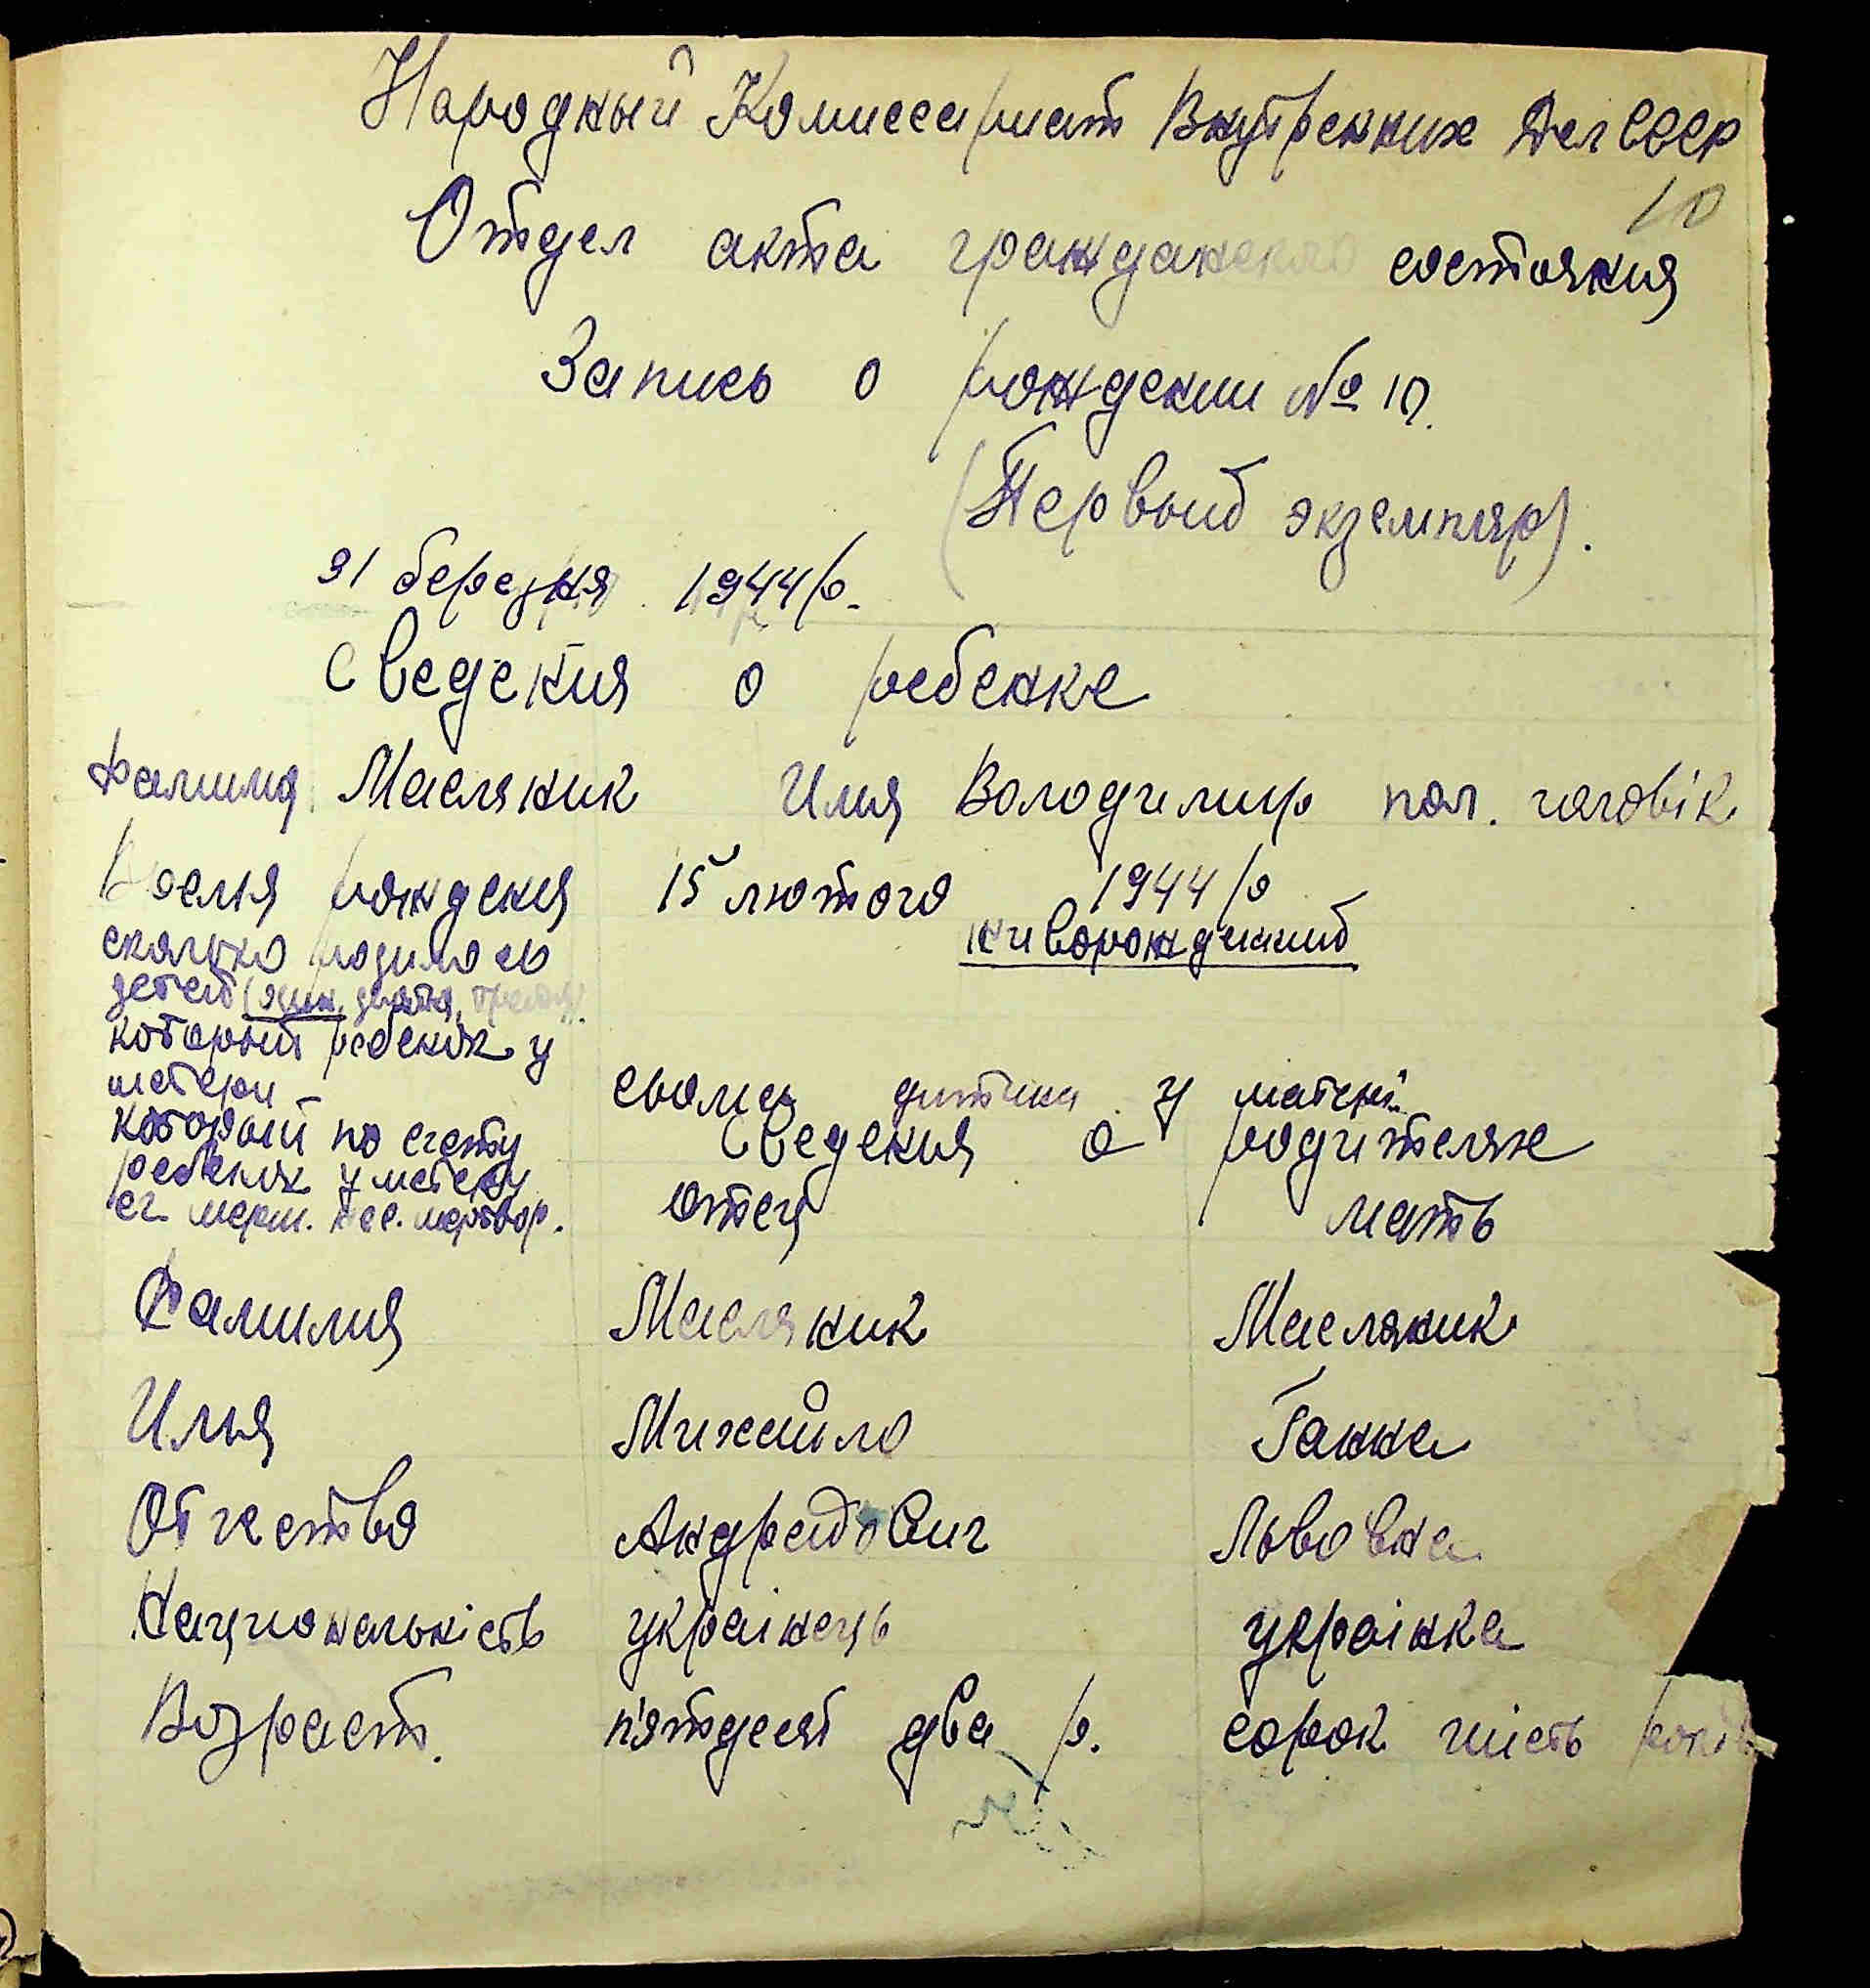 Народный Комиссариат Внутренних Дел СССР
10
Отдел акта гражданского состояния
Запись о рождении № 10.
(Первый экземпляр).
31 березня 1944 р.
Сведения о ребенке
Фамилия Масляник Имя Володимир пол. чоловік
Время рождения 15 лютого 1944 р
живорожденный
сколько родилось
детей (один, двойня, тройня).
который ребенок у
матери – сьома дитина у матері.
который по счету Сведения о родителях
ребенок у матери
отец мать
Фамилия Масляник Масляник
Имя Михайло Ганна
Отчество Андрейович Львовна
Национальність українець українка
Возраст. п'ятдесят два р. сорок шість років